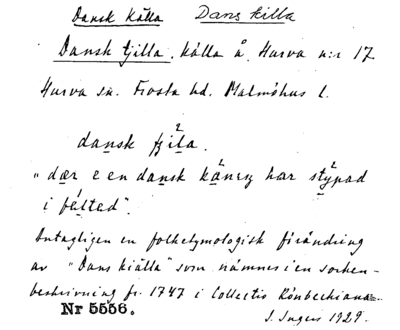 Dansk Källa Dans killa
Dansk tjilla. källa å Hurva n:r 17
Hurva sn. Frosta hd. Malmöhus l.
dansk fjila.
"dær e en dansk kånng har stypad
i fälted".
Antagligen en folketymologisk förändring
av "Dans kiälla" som nämnes i en socken-
beskrivning fr. 1747 i Collectio Rönbeckiana.
Nr 5556. I. Ingers 1929.